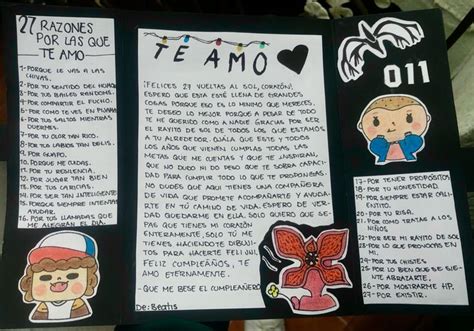 27 RAZONES
POR LAS QUE
TE AMO
1-PORQUE LE VAS A LAS
CHIVAS.
2-POR TU SENTIDO DEL HUMOR
3-POR TUS BAILES RANDOMS.
4-POR COMPARTIR EL PUCHO.
5-POR COMO TE VES EN PIJAMA
6-POR TUS SALTOS MIENTRAS
DUERMES.
7-POR TU OLOR TAN RICO.
8-POR TUS LABIOS TAN
9-POR GUAPO.
10. PORQUE ME CUIDAS.
11. POR TU RESILIENCIA.
12. POR JUGAR TAN BIEN
13. POR TUS CARICIAS.
14. POR SER TAN INTELIGENTE
15. PORQUE SIEMPRE INTENTAS
AYUDAR.
16. POR TUS LLAMADAS QUE
ME ALEGRAN EL DÍA.
TE AMO
¡FELICES 27 VUELTAS AL SOL, CORAZÓN!
ESPERO QUE ESTA ESTÉ LLENA DE GRANDES
COSAS PORQUE ESO ES LO MINIMO QUE MERECES.
TE DESEO LO MEJOR PORQUE A PESAR DE TODO
TE HE QUERIDO COMO A NADIE GRACIAS POR SER
EL RAYITO DE SOL DE TODOS LOS QUE ESTAMOS
A TU ALREDEDOR. OJALÁ QUE ESTE Y TODOS
LOS AÑOS QUE VIENEN CUMPLAS TODAS LAS
METAS QUE ME CUENTAS Y QUE TE INSPIRAN,
QUE NO DUDO NI DO PESO QUE TE SOBRA CAPACI-
DAD PARA CUMPLIR TODO LO QUE TE PROPONGAS.
NO DUDES QUE AQUÍ TIENES UNA COMPAÑERA
DE VIDA QUE PROMETE ACOMPAÑARTE Y AYUDAR-
TE EN TU CAMILO DE VIDA. ESPERO DE VER-
DAD QUEDARME EN ELLA. SOLO QUIERO QUE SE-
PAS QUE TIENES MI CORAZÓN
ENTERAMENTE. SOLO TÚ ME
TIENES HACIENDOTE DIBUJI-
TOS PARA HACERTE FELIJIJI,
FELIZ CUMPLEAÑOS, TE
AMO ETERNAMENTE.
-QUE ME BESE EL CUMPLEAÑERO
De: Beatis
011
17-POR TENER PROPÓSITOS
18-POR TU HONESTIDAD.
19-POR SIEMPRE ESTAR CALI-
ENTITO.
20-POR TU RISA.
21-POR COMO TRATAS A LOS
NIÑOS
22-POR SER MI RAYITO DE SOL
23-POR LO QUE PROVOCAS EN
MI.
24-POR TUS CHISTES
25-POR LO BIEN QUE SE SIE-
NTE ABRAZARTE,
26-POR MOSTRARME HP.
27-POR EXISTIR.